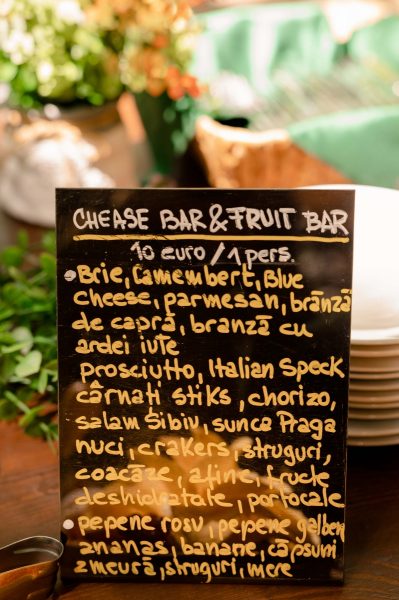 CHEASE BAR & FRUIT BAR
10 euro / 1 pers.
Brie, Camembert, Blue
cheese, parmesan, brânză
de capră, branză cu
ardei iute
prosciutto, Italian Speck
cârnați stiks, chorizo,
salam Sibiu, sunca Praga
nuci, crakers, struguri,
coacăze, afine, fructe
deshidratate, portocale
pepene rosu, pepene galben
ananas, banane, căpsuni
zmeură, struguri, mere